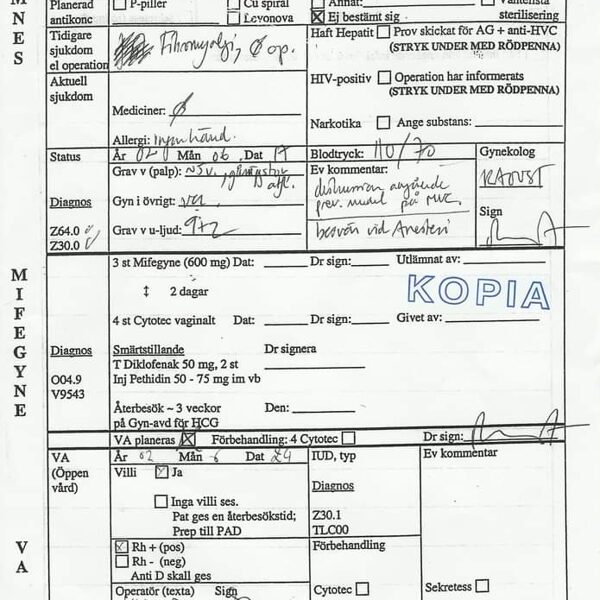 M
N
E
S
Planerad antikonc
P-piller
Cu spiral
Levonova
Annat:
Ej bestämt sig
Väntelista sterilisering
Tidigare sjukdom el operation
Ø op.
Haft Hepatit Prov skickat för AG + anti-HVC
(STRYK UNDER MED RÖDPENNA)
Aktuell sjukdom
HIV-positiv Operation har informerats
(STRYK UNDER MED RÖDPENNA)
Mediciner: Ø
Narkotika Ange substans:
Allergi:
Status
År 02 Mån 06, Dat 17
Blodtryck: 110/70
Gynekolog
Grav v (palp): NSV,
Ev kommentar:
Diagnos
Gyn i övrigt: ua
prev. medel på MVC.
Sign
Z64.0
Z30.0
Grav v u-ljud: 9+2
besvär vid Anesteri
M
I
F
E
G
Y
N
E
3 st Mifegyne (600 mg) Dat: Dr sign: Utlämnat av:
↕ 2 dagar
KOPIA
4 st Cytotec vaginalt Dat: Dr sign: Givet av:
Diagnos
Smärtstillande Dr signera
T Diklofenak 50 mg, 2 st
O04.9
Inj Pethidin 50 - 75 mg im vb
V9543
Återbesök ~ 3 veckor Den:
på Gyn-avd för HCG
VA planeras Förbehandling: 4 Cytotec Dr sign:
V
A
VA
(Öppen vård)
År 02 Mån 6 Dat 24
IUD, typ
Ev kommentar
Villi Ja
Diagnos
Inga villi ses.
Pat ges en återbesökstid;
Prep till PAD
Z30.1
TLC00
Rh + (pos)
Förbehandling
Rh - (neg)
Anti D skall ges
Operatör (texta) Sign
Cytotec
Sekretess